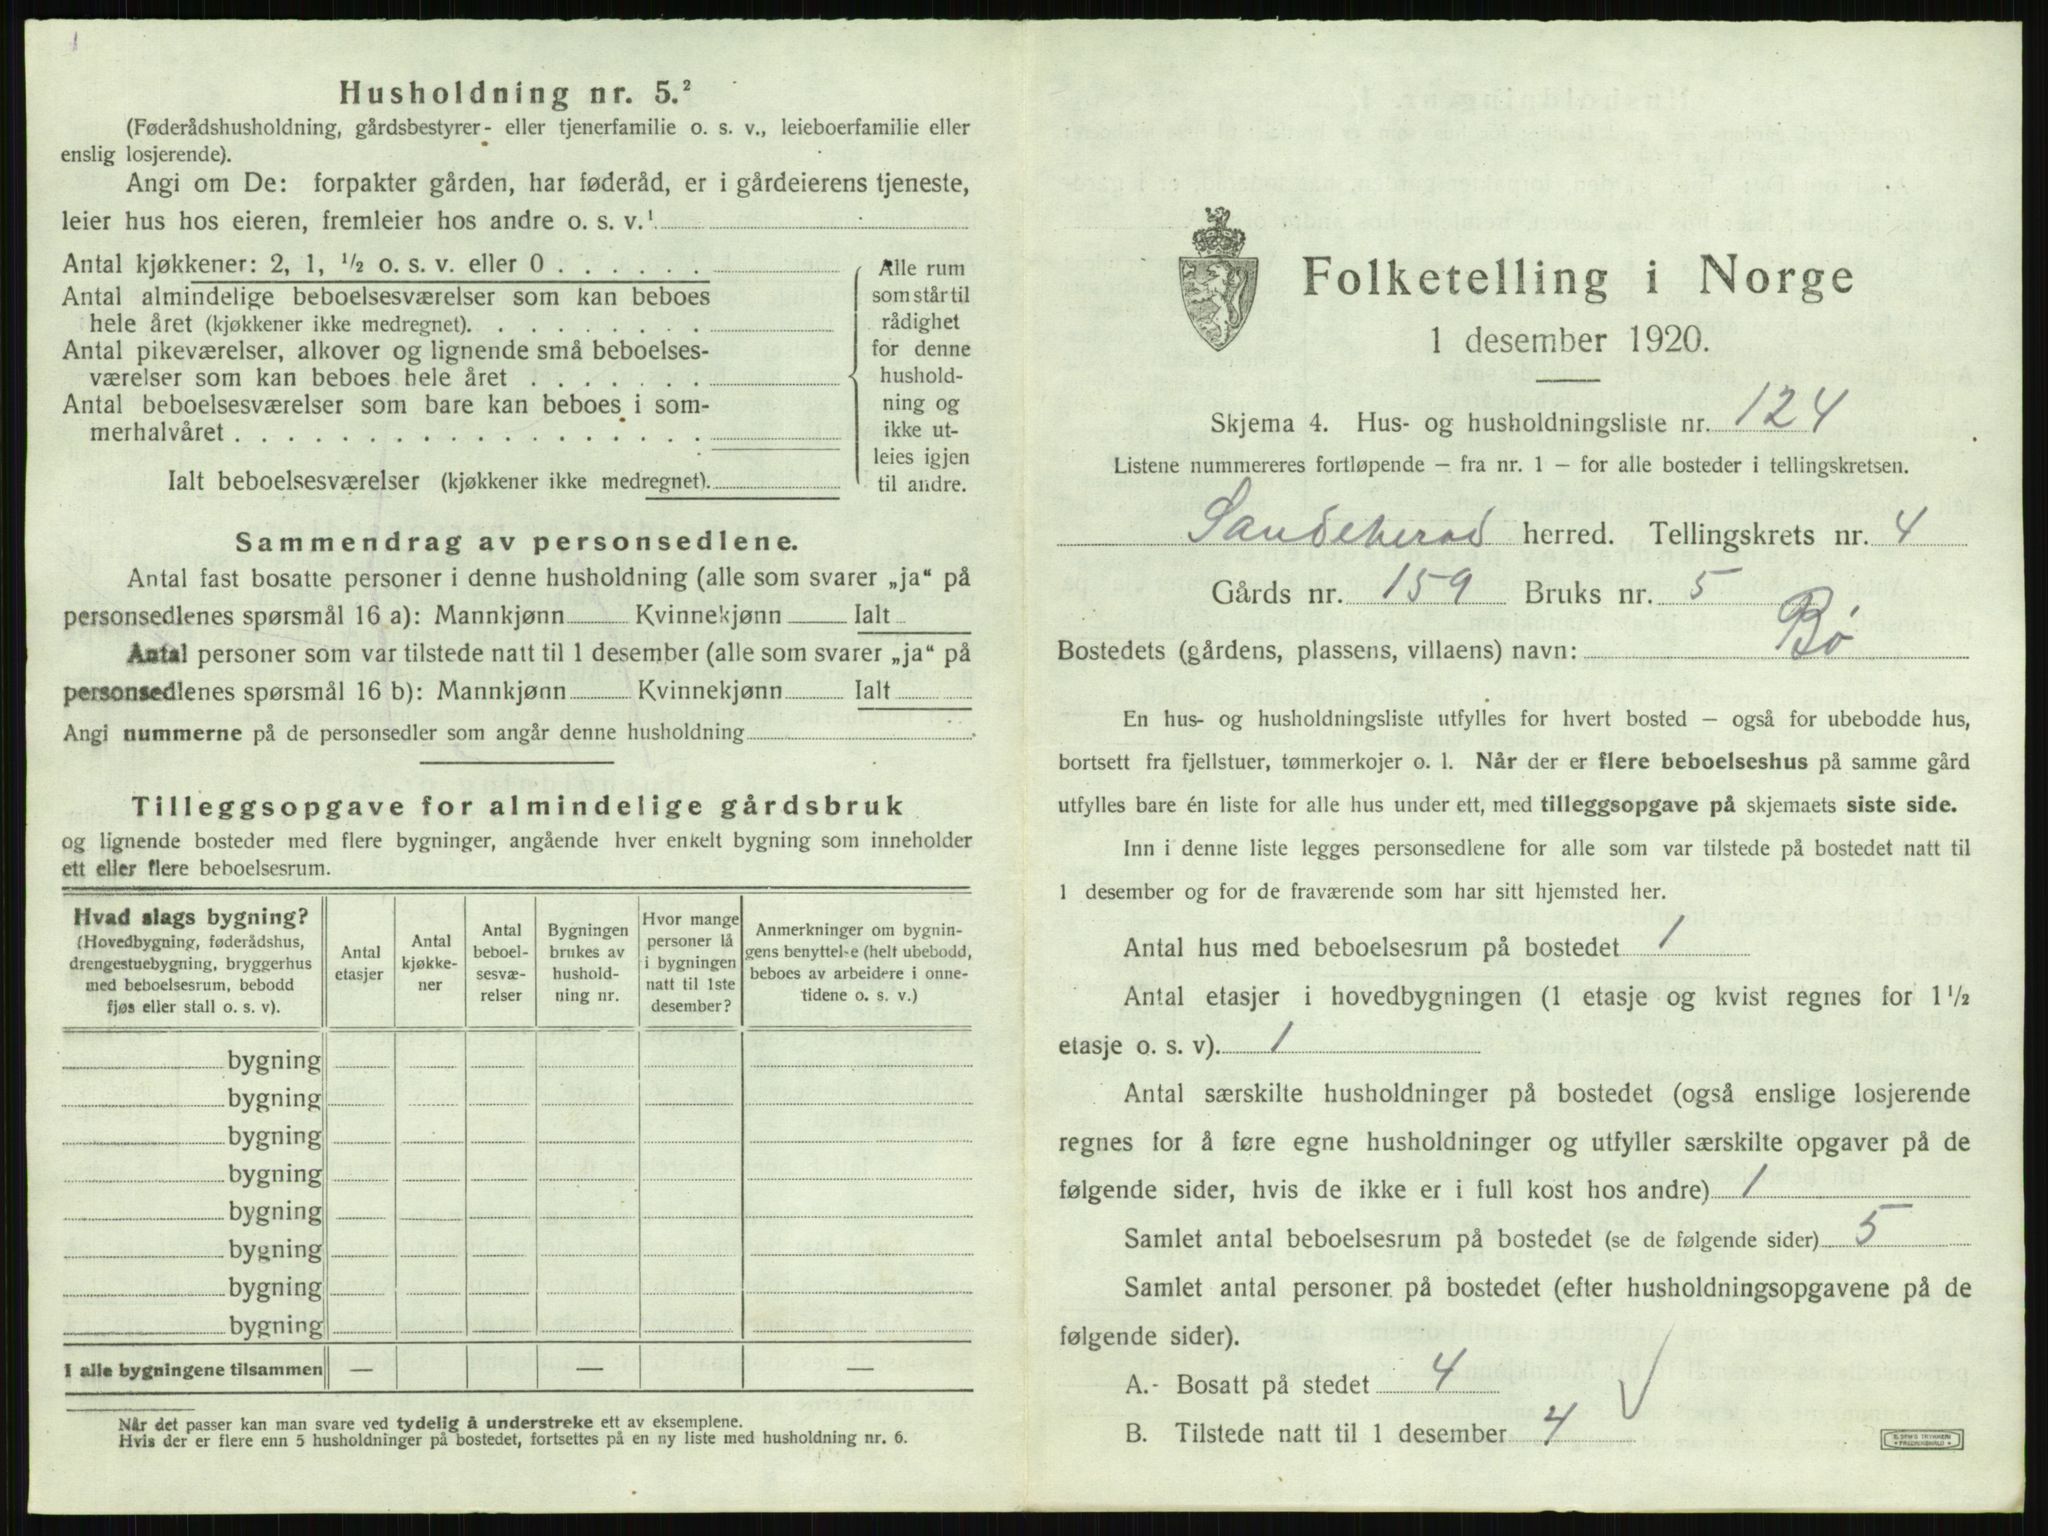 Husholdning nr. 5.²
(Føderådshusholdning, gårdsbestyrer- eller tjenerfamilie o. s. v., leieboerfamilie eller
enslig losjerende).
Angi om De: forpakter gården, har føderåd, er i gårdeierens tjeneste,
leier hus hos eieren, fremleier hos andre o. s. v.¹
Antal kjøkkener: 2, 1, ½ o. s. v. eller 0 . . . . . .
Antal almindelige beboelsesværelser som kan beboes
hele året (kjøkkener ikke medregnet). . . . . . . . .
Antal pikeværelser, alkover og lignende små beboelses-
værelser som kan beboes hele året . . . . . . .
Antal beboelsesværelser som bare kan beboes i som-
merhalvåret . . . . . . . . . . . . . . . . . .
Ialt beboelsesværelser (kjøkkener ikke medregnet).
Alle rum
som står til
rådighet
for denne
hushold-
ning og
ikke ut-
leies igjen
til andre.
Sammendrag av personsedlene.
Antal fast bosatte personer i denne husholdning (alle som svarer „ja“ på
personsedlenes spørsmål 16 a): Mannkjønn Kvinnekjønn Ialt
Antal personer som var tilstede natt til 1 desember (alle som svarer „ja“ på
personsedlenes spørsmål 16 b): Mannkjønn Kvinnekjønn Ialt
Angi nummerne på de personsedler som angår denne husholdning
Tilleggsopgave for almindelige gårdsbruk
og lignende bosteder med flere bygninger, angående hver enkelt bygning som inneholder
ett eller flere beboelsesrum.
Hvad slags bygning?
(Hovedbygning, føderådshus,
drengestuebygning, bryggerhus
med beboelsesrum, bebodd
fjøs eller stall o. s. v).
Antal
etasjer
Antal
kjøkke-
ner
Antal
beboel-
sesvæ-
relser
Bygningen
brukes av
hushold-
ning nr.
Hvor mange
personer lå
i bygningen
natt til 1ste
desember?
Anmerkninger om bygnin-
gens benyttelse (helt ubebodd,
beboes av arbeidere i onne-
tidene o. s. v.)
bygning
bygning
bygning
bygning
bygning
bygning
bygning
bygning
I alle bygningene tilsammen — — —
Når det passer kan man svare ved tydelig å understreke ett av eksemplene.
Hvis der er flere enn 5 husholdninger på bostedet, fortsettes på en ny liste med husholdning nr. 6.
Folketelling i Norge
1 desember 1920.
Skjema 4. Hus- og husholdningsliste nr. 124
Listene nummereres fortløpende – fra nr. 1 – for alle bosteder i tellingskretsen.
Sandeherad herred. Tellingskrets nr. 4
Gårds nr. 159 Bruks nr. 5
Bostedets (gårdens, plassens, villaens) navn: Bø
En hus- og husholdningsliste utfylles for hvert bosted – også for ubebodde hus,
bortsett fra fjellstuer, tømmerkojer o. l. Når der er flere beboelseshus på samme gård
utfylles bare én liste for alle hus under ett, med tilleggsopgave på skjemaets siste side.
Inn i denne liste legges personsedlene for alle som var tilstede på bostedet natt til
1 desember og for de fraværende som har sitt hjemsted her.
Antal hus med beboelsesrum på bostedet 1
Antal etasjer i hovedbygningen (1 etasje og kvist regnes for 1½
etasje o. s. v). 1
Antal særskilte husholdninger på bostedet (også enslige losjerende
regnes for å føre egne husholdninger og utfyller særskilte opgaver på de
følgende sider, hvis de ikke er i full kost hos andre) 1
Samlet antal beboelsesrum på bostedet (se de følgende sider) 5
Samlet antal personer på bostedet (efter husholdningsopgavene på de
følgende sider).
A.- Bosatt på stedet 4
B. Tilstede natt til 1 desember 4